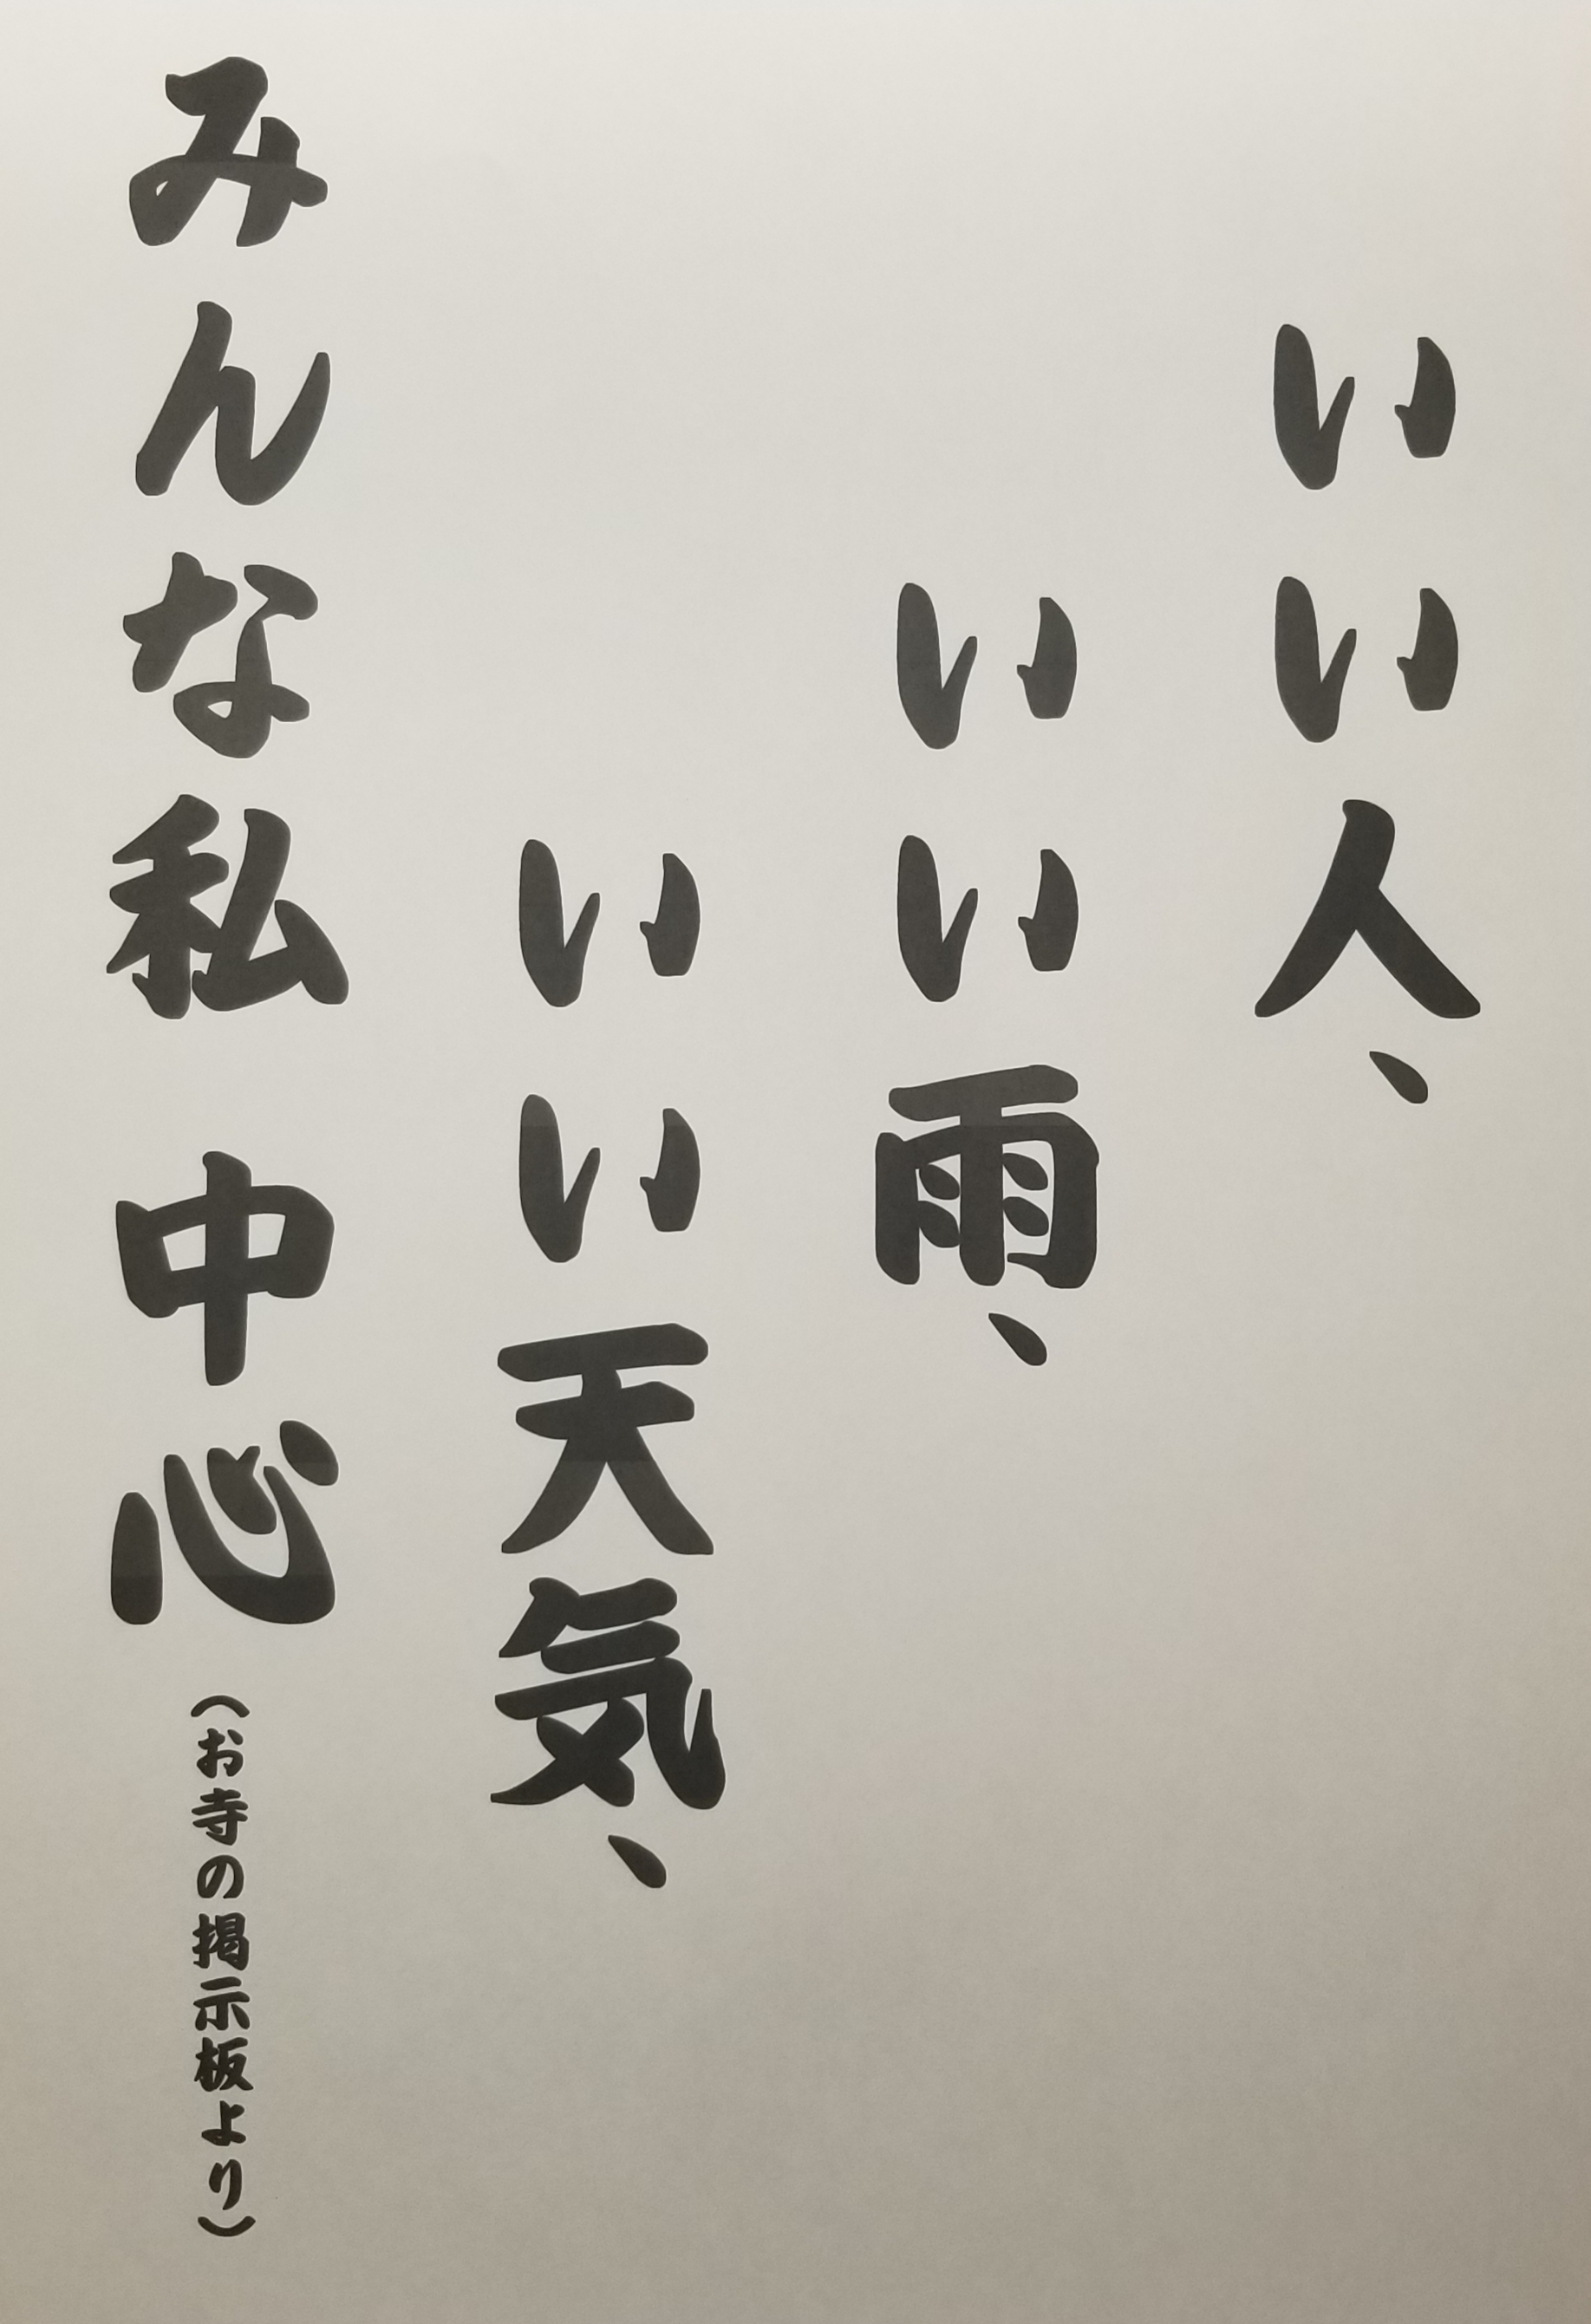 いい人、
いい雨、
いい天気、
みんな私 中心（お寺の掲示板より）